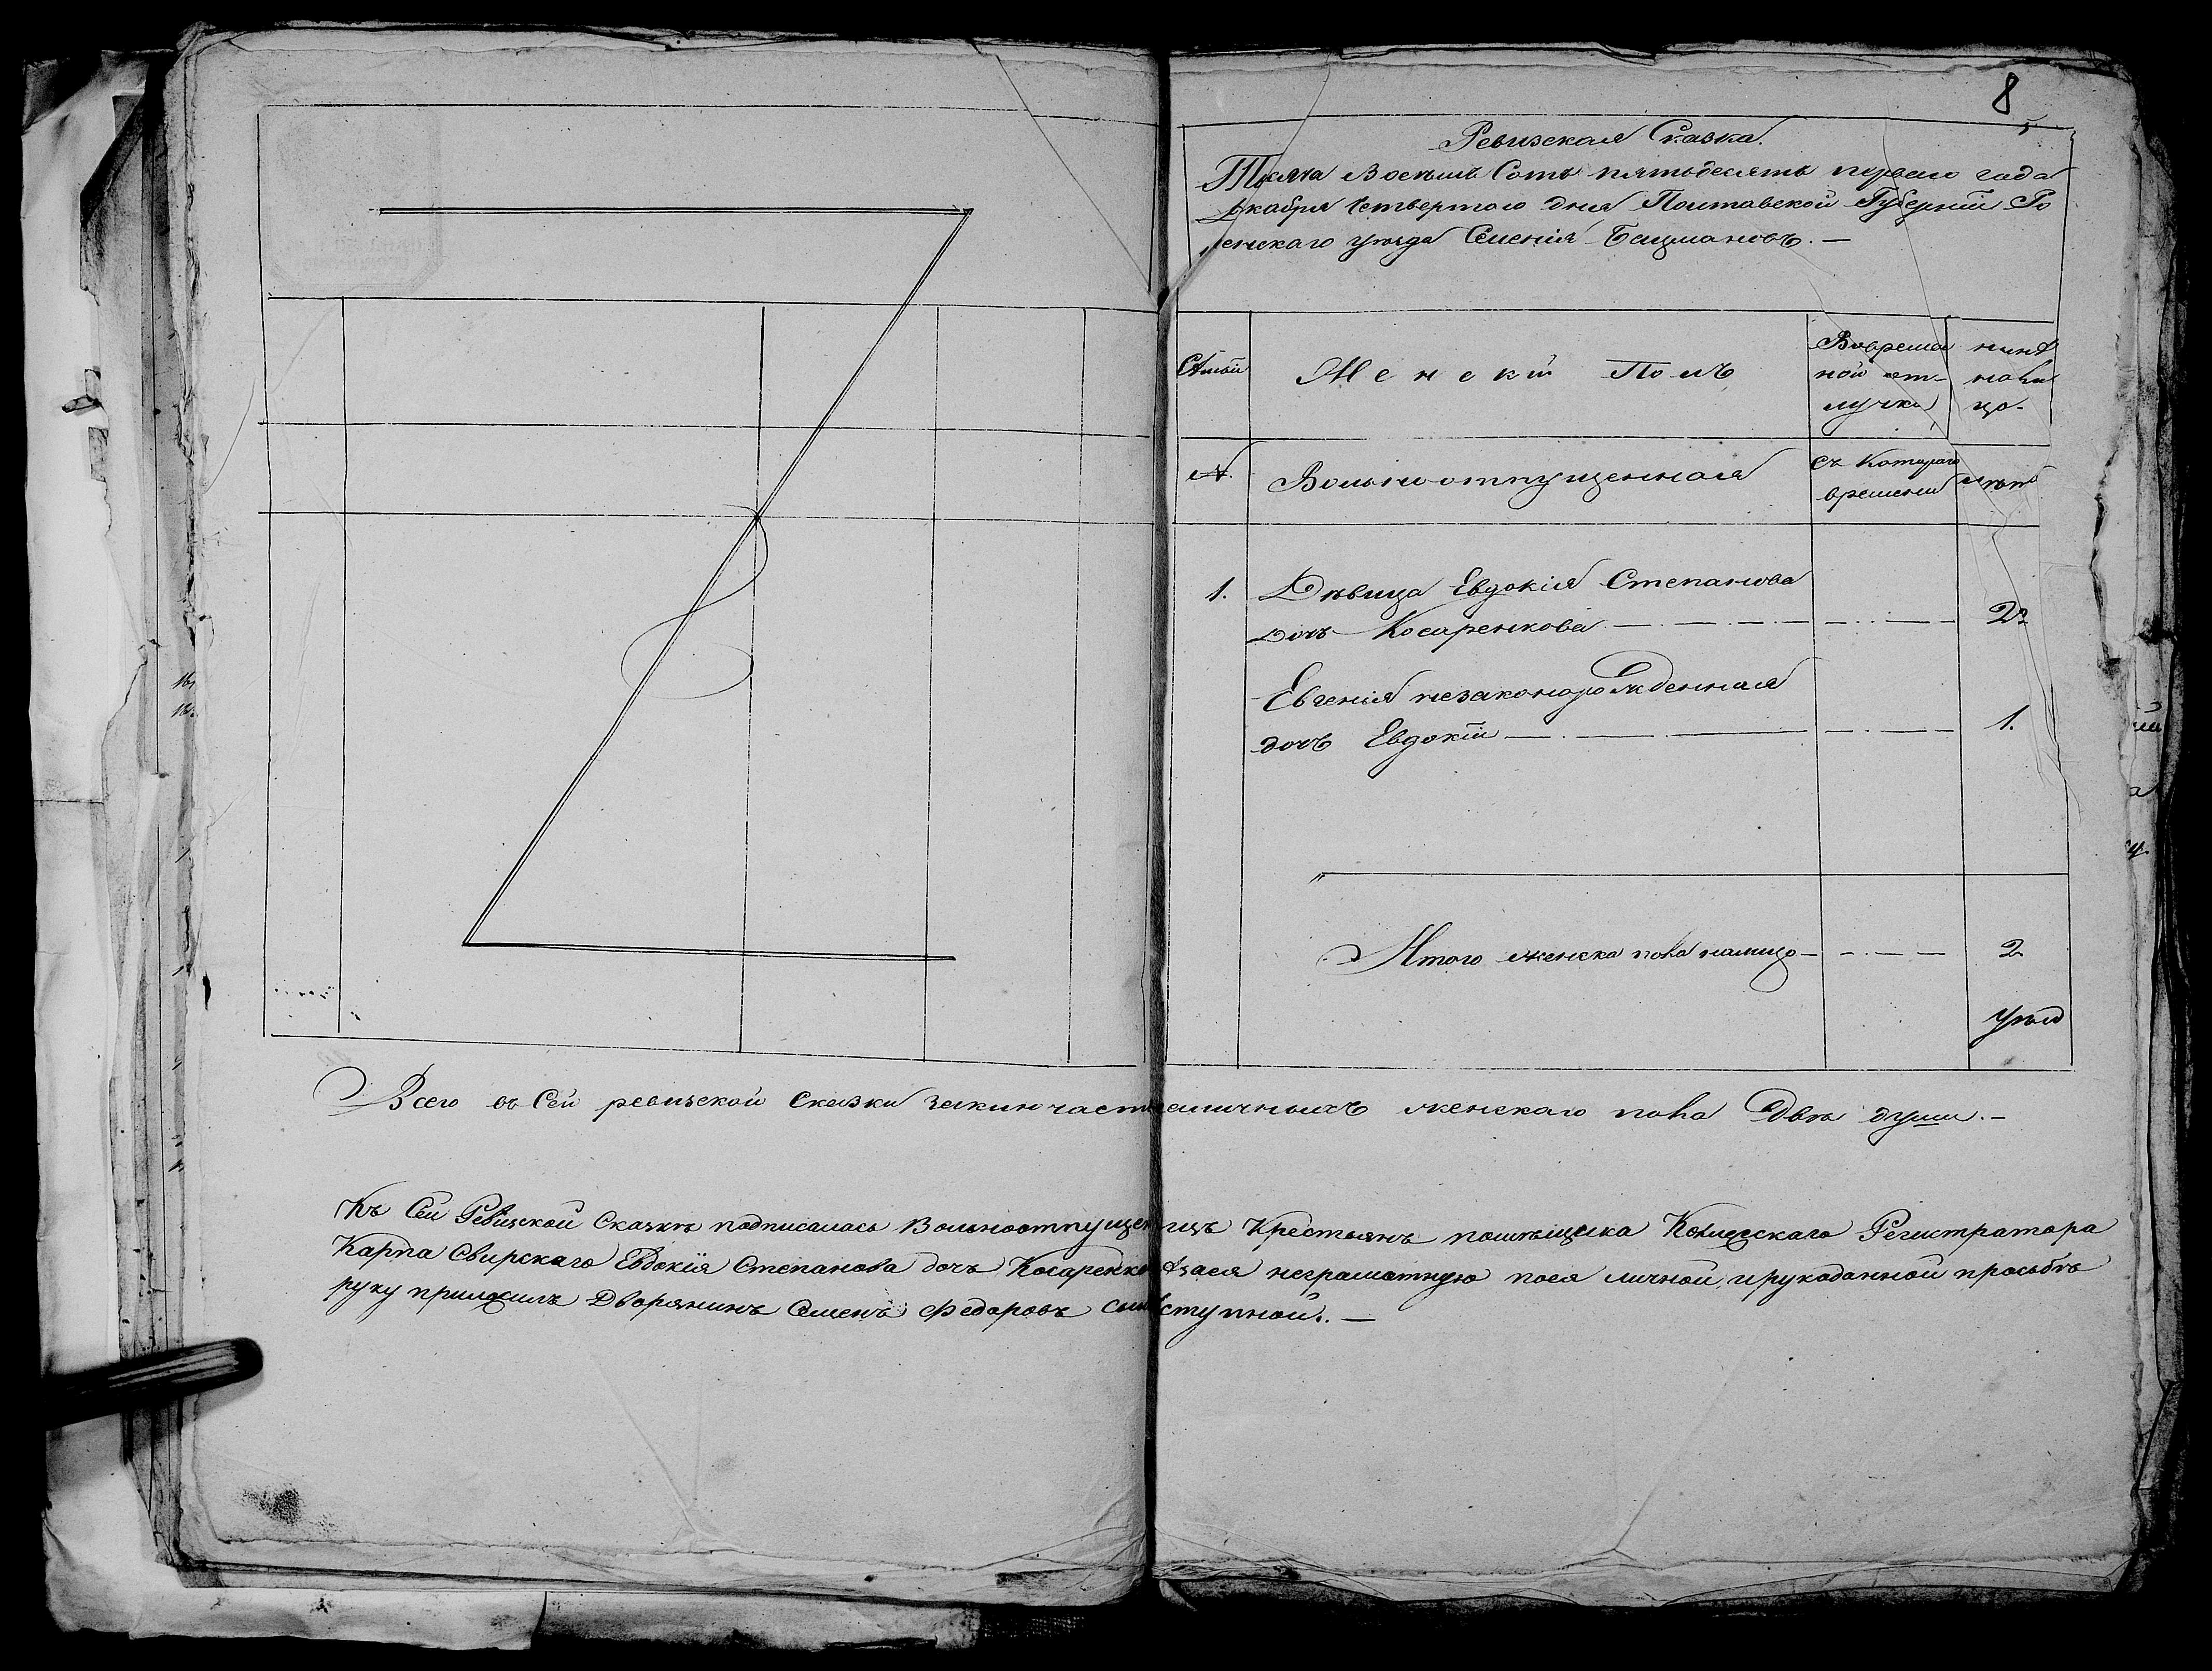 8
Ревизская Сказка.
Тысяча Восемь Сотъ пятьдесятъ перваго года
Декабря четвертого дня Полтавской Губерніи Ро
менскаго уѣзда Селенія Бацмановъ. —
Семьи
Женскій Полъ
Вовремен
ной от-
лучки
нынѣ
нали
цо.
№
Вольноотпущенная
съ Котораго
времени
лѣтъ
1. Дѣвица Евдокія Степанова
Дочь Косаренкова 22
Евгенія незаконорожденная
дочь Евдокіи 1.
Итого женска пола налицо 2
Всего въ Сей ревизской Сказки наличныхъ женскаго пола Двѣ души. —
Къ Сей Ревизской Сказкѣ подписалась Вольноотпущен ицъ Крестьянъ помѣщика Колежскаго Регистратора
Карпа Свирскаго Евдокія Степанова дочь Косаренкова заея неграмотную поея личной ирукоданной прозьбѣ
руку приложилъ Дворянинъ Семенъ Федоровъ сынъ Ступной. —